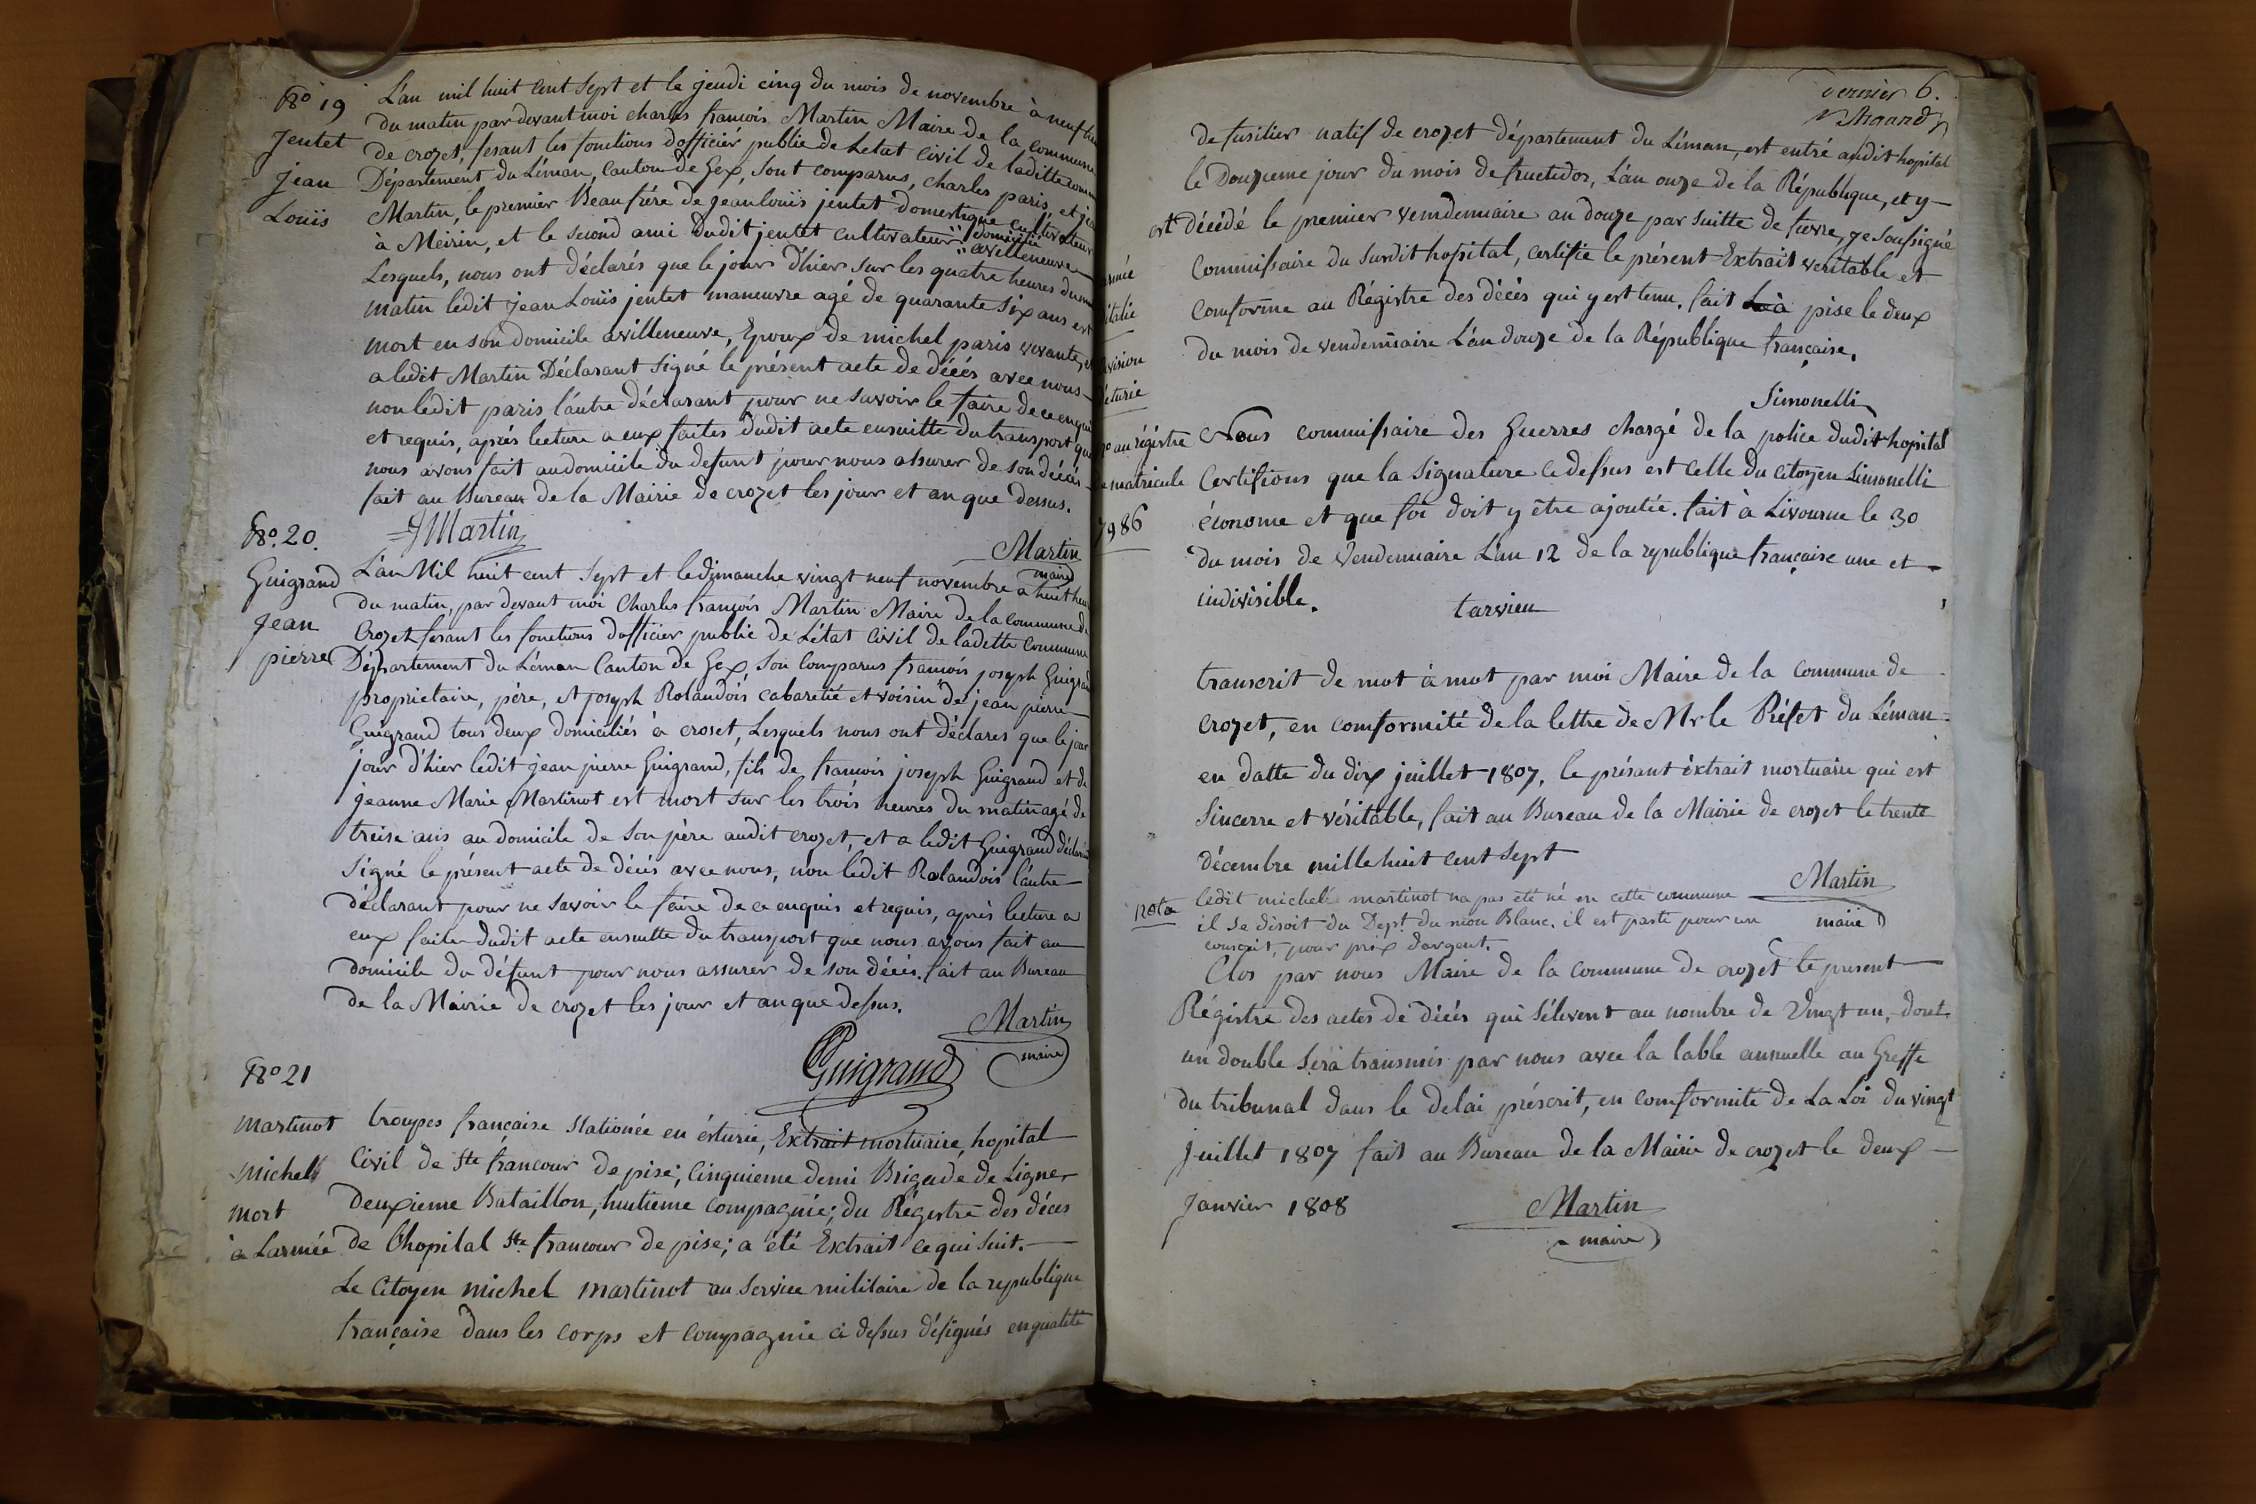 No 19
Jentet
Jean
Louis
L'an mil huit cent sept et le jeudi cinq du mois de novembre à neuf
du matin par devant moi charles francois Martin Maire de la commune
de crozet, fesant les fonctions d'officiér public de L'etat civil de laditte
Département du Léman, canton de Gex, sont comparus, charles paris, et
Martin, le premier Beaufrére de jean louis jentet domestique cultivateur
à Meirin, et le second ami dudit jentet cultivateur domicilié
avilleneuve
Lesquels, nous ont déclarés que le jour d'hier sur les quatre heures du
matin ledit jean Louis jentet maneuvre agé de quarante six ans est
mort en son domicile avilleneuve, Epoux de michel paris vivante,
a ledit Martin Déclarant signé le présent acte de décés avec nous
non ledit paris l'autre déclarant pour ne savoir le faire de ce enquis
et requis, aprés lecture a eux faites dudit acte ensuitte du transport que
nous avons fait au domicile du defunt pour nous assurer de son décés
fait au Bureau de la Mairie de crozet les jour et an que dessus.
Martin
Martin
maire
No. 20.
Guigrand
Jean
pierre
L'an Mil huit cent sept et le dimanche vingt neuf novembre a huit
du matin, par devant moi Charles françois Martin Maire de la commune de
Crozet fesant les fonctions d'officier public de L'état civil de ladette commune
Département du Léman Canton de Gex son comparus francois joseph Guigrand
proprietaire, pére, et joseph Rolandois cabaretié et voisin de jean pierre
Guigrand tous deux domiciliés à croset, Lesquels nous ont déclares que le jour
jour d'hier ledit jean pierre Guigrand, fils de francois joseph Guigrand et de
jeanne Marie Martinot est mort sur les trois heures du matin agé de
treise ans au domicile de son père audit crozet, et a ledit Guigrand déclarant
Signé le présent acte de décés avec nous, non ledit Rolandois l'autre
déclarant pour ne savoir le faire de ce enquis et requis, après lecture a
eux faite dudit acte ensuitte du transport que nous avons fait au
domicile du défunt pour nous assurer de son décés. fait au Bureau
de la Mairie de crozet les jour et an que dessus.
Martin
maire
Guigrand
No 21
martinot
michel
mort
à Larmée
troupes française stationée en étturie, Extrait mortuaire, hopital
Civil de Ste francour de pise; Cinquieme demi Brigade de Ligne
Deuxieme Bataillon, huitieme compagnie; du Régistre des déces
de l'hopital Ste francour de pise; a été Extrait ce qui suit.
Le citoyen michel martinot au service militaire de la republique
française dans les corps et compagnie ci dessus désignés en qualité
dernier 6.
de fusilier natif de crozet département du Léman, est entré audit hopital
le douzieme jour du mois de fructidor, L'an onze de la République, et y
est décédé le premier vendemiaire an douze par suitte de fievre, je soussigné
Commissaire du susdit hospital, certifie le présent Extrait veritable et
Conforme au Régistre des décès qui y est tenu. fait à pise le deux
du mois de vendemiaire L'an douze de la République française.
Simonelli
au régistre
matricule
7986
Nous commissaire des Guerres chargé de la police dudit hopital
Certifions que la signature ci dessus est celle du citoyen Simonelli
économe et que foi doit y être ajoutée. fait à Livourne le 30
du mois de Vendemiaire L'an 12 de la republique française une et
indivisible.
tarvieu
transcrit de mot à mot par moi Maire de la commune de
crozet, en conformité de la lettre de Mr le Préfet du Léman
en datte du dix juillet 1807, le présant èxtrait mortuaire qui est
sincerre et véritable, fait au Bureau de la Mairie de crozet le trente
décembre mille huit cent sept
Martin
maire
nota
ledit michel martinot na pas eté né en cette commune
il se disoit du Dept. du mon Blanc. il est parti pour un
conscrit, pour prix dargent.
Clos par nous Maire de la commune de crozet le present
Régistre des actes de décés qui s'élevent au nombre de Vingt un, dont
un double sera transmis par nous avec la table annuelle au Greffe
du tribunal dans le delai préscrit, en conformité de La Loi du vingt
juillet 1807 fait au Bureau de la Mairie de crozet le deux
Janvier 1808
Martin
maire